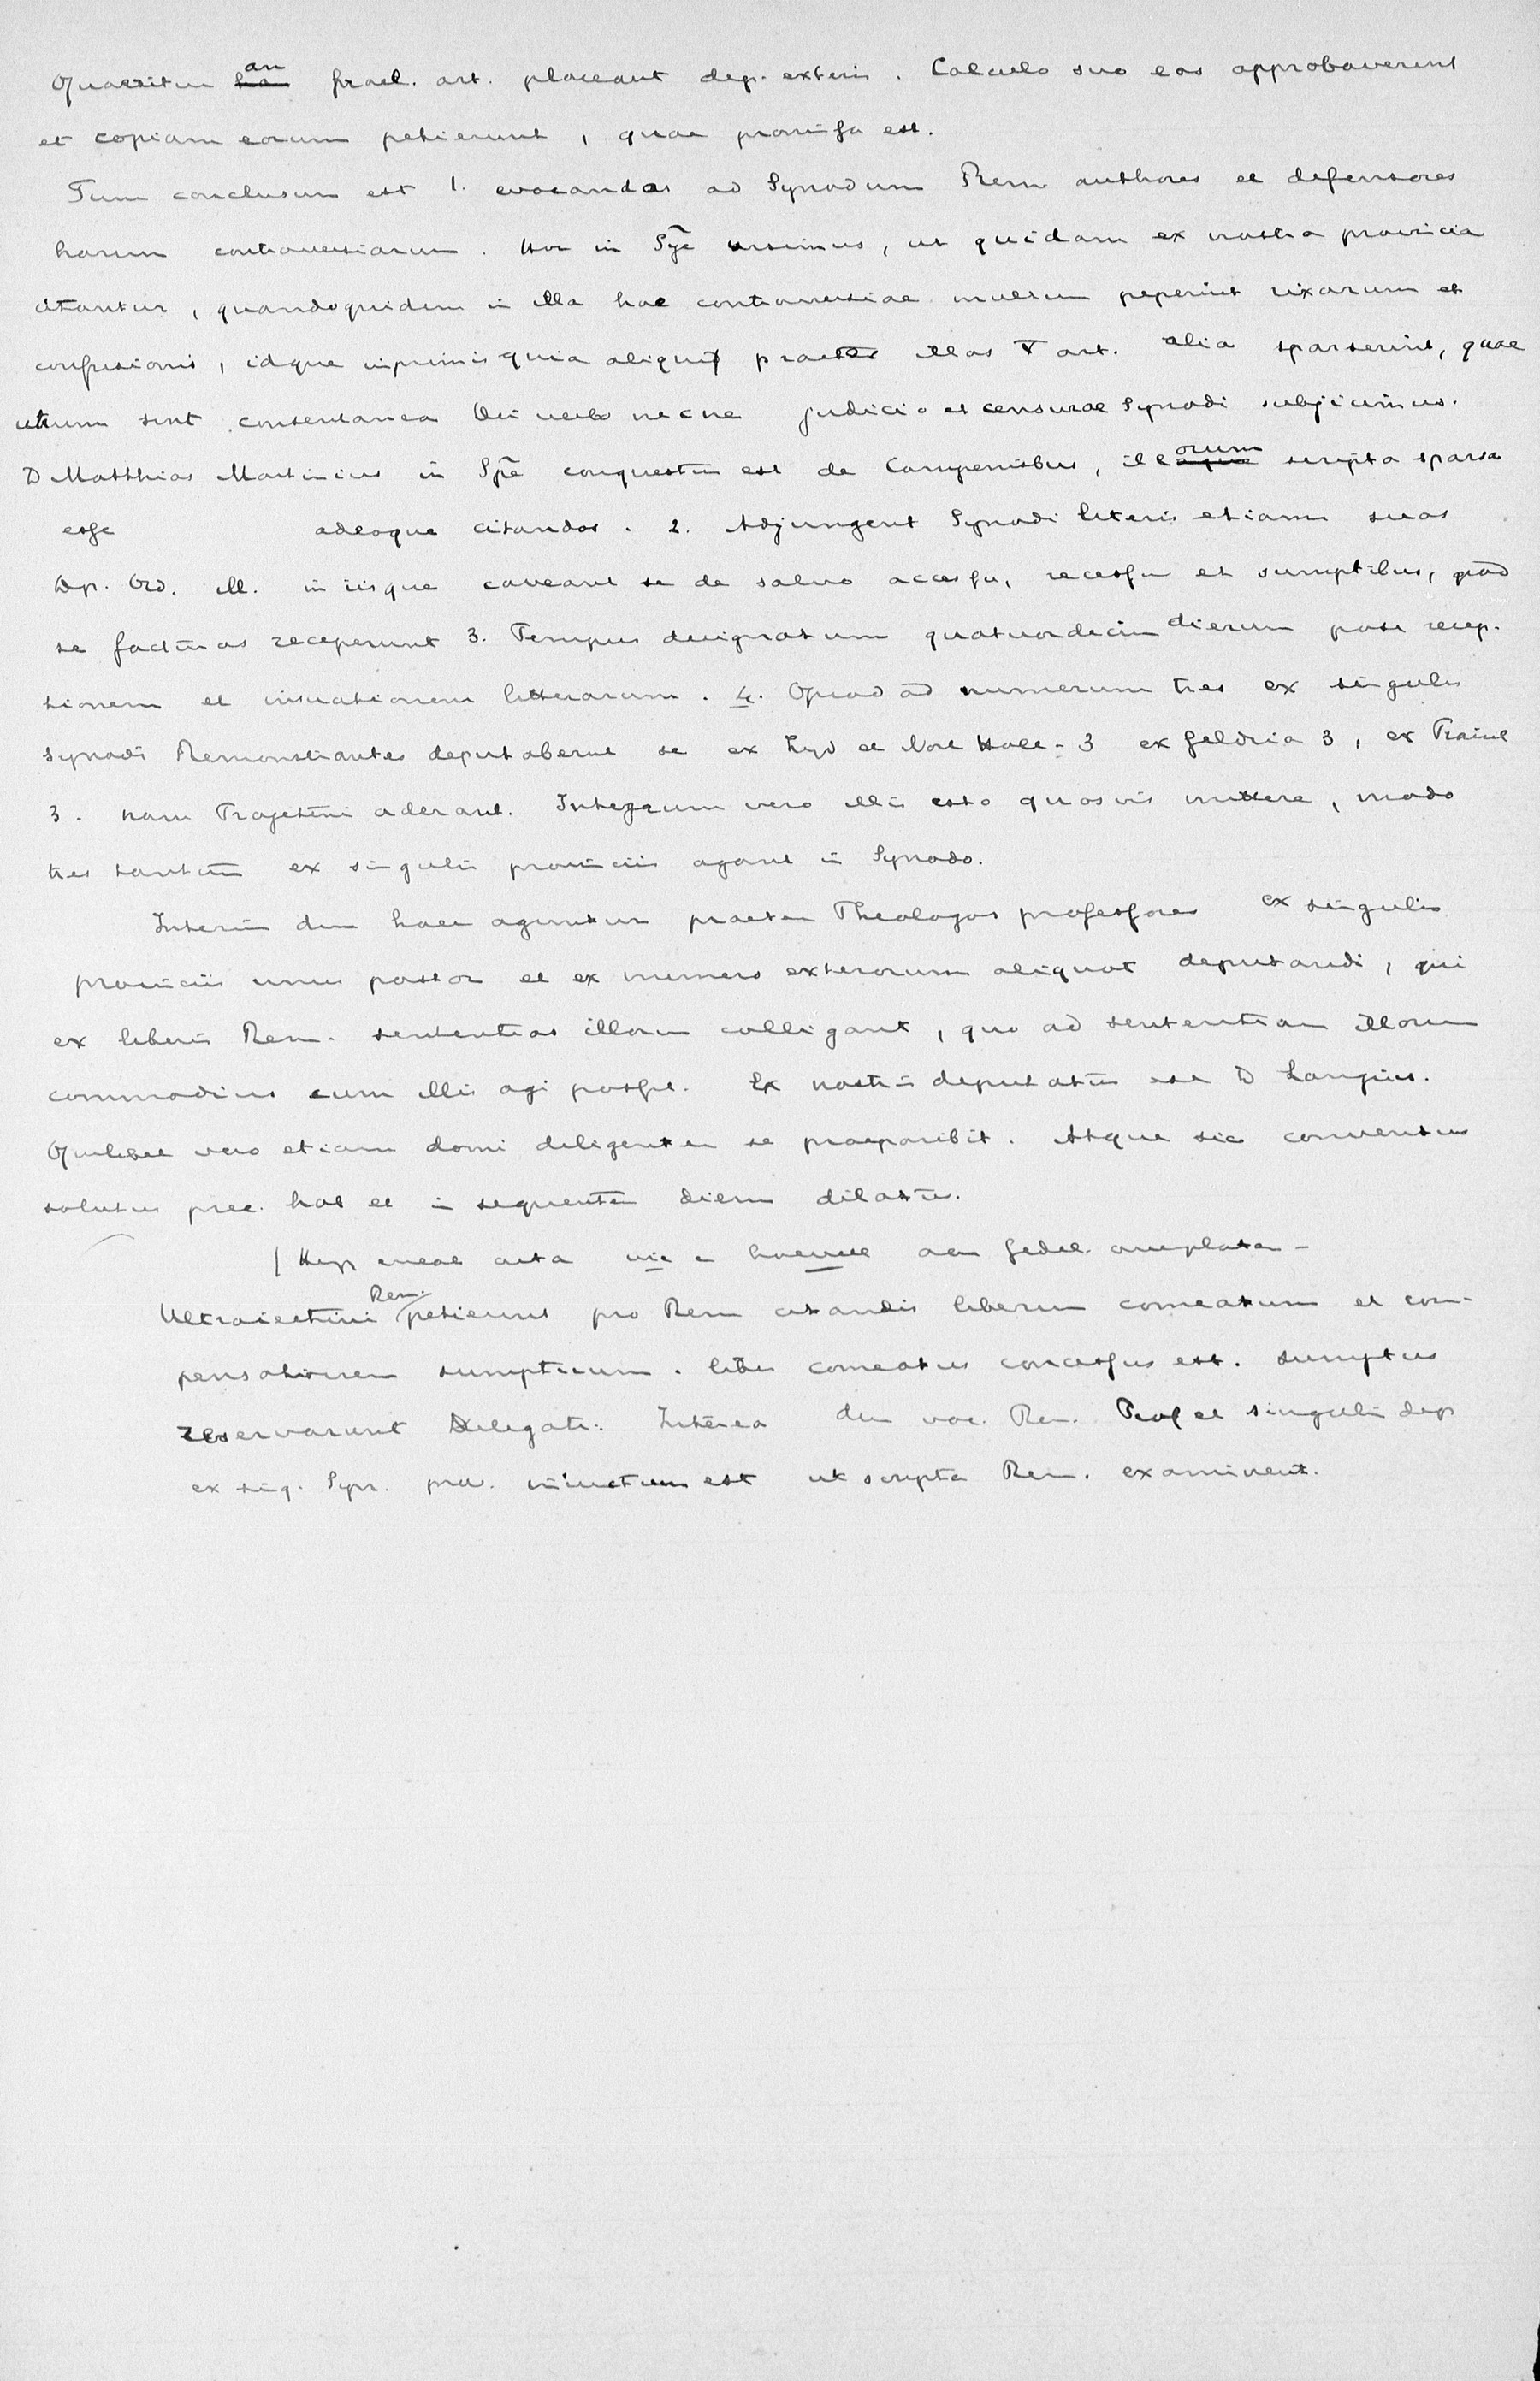 Quaeritur an prael. art. placeant dep. exteris. Calculo suo eos approbaverunt
et copiam eorum petierunt, quae promissa est.
Tum conclusum est 1. evocandos ad Synodum Rem authores et defensores
harum controversiarum. Hoc in ursimus, ut quidam ex nostra provincia
citantur, quandoquidem in illa hae controversiae multum pepererint rixarum et
confusionis, idque inprimis quia aliquid praeter illos V art. alia sparserint, quae
utrum sint consentanea Dei verbo necne judicio et censurae Synodi subjicimus.
D Matthias Martinius in conquestus est de Campensibus, illorum scripta sparsa
esse adeoque citandos. 2. Adjungent Synodi literis etiam suas
Dep. Ord. ill. in iisque caveant se de salvo accessu, recessu et sumptibus, quod
se facturos receperunt 3. Tempus designatum quatuordecim dierum post recep-
tionem et insinuationem litterarum. 4. Quod ad numerum tres ex singulis
synodis Remonstrantes deputabunt se ex Zyd et Nort Holl- 3 ex Geldria 3, ex Traiect
3. nam Trajectini aderant. Integrum vero illis esto quosvis mittere, modo
tres tantum ex singulis provinciis agant in Synodo.
Interim dum haec aguntur praeter Theologos professores ex singulis
provinciis unus pastor et ex numero exterorum aliquot deputandi, qui
ex libris Rem. sententias illorum colligant, quo ad sententiam illorum
commodius cum illis agi posse. Ex nostris deputatus est D Langius.
Quilibet vero etiam domi diligenter se praeparabit. Atque sic conventus
solutus prec. hab et in sequentem diem dilatus.
acta
Ultraiectini Rem. petierunt pro Rem citandis liberum comeatum et com-
pensationem sumptuum. liber comeatus concessus est. Sumptus
reservarunt Delegati. Interea dum voc. Rem. Prof et singulis dep
ex sing. Syn. prov. iniunctum est ut scripta Rem. examinent.